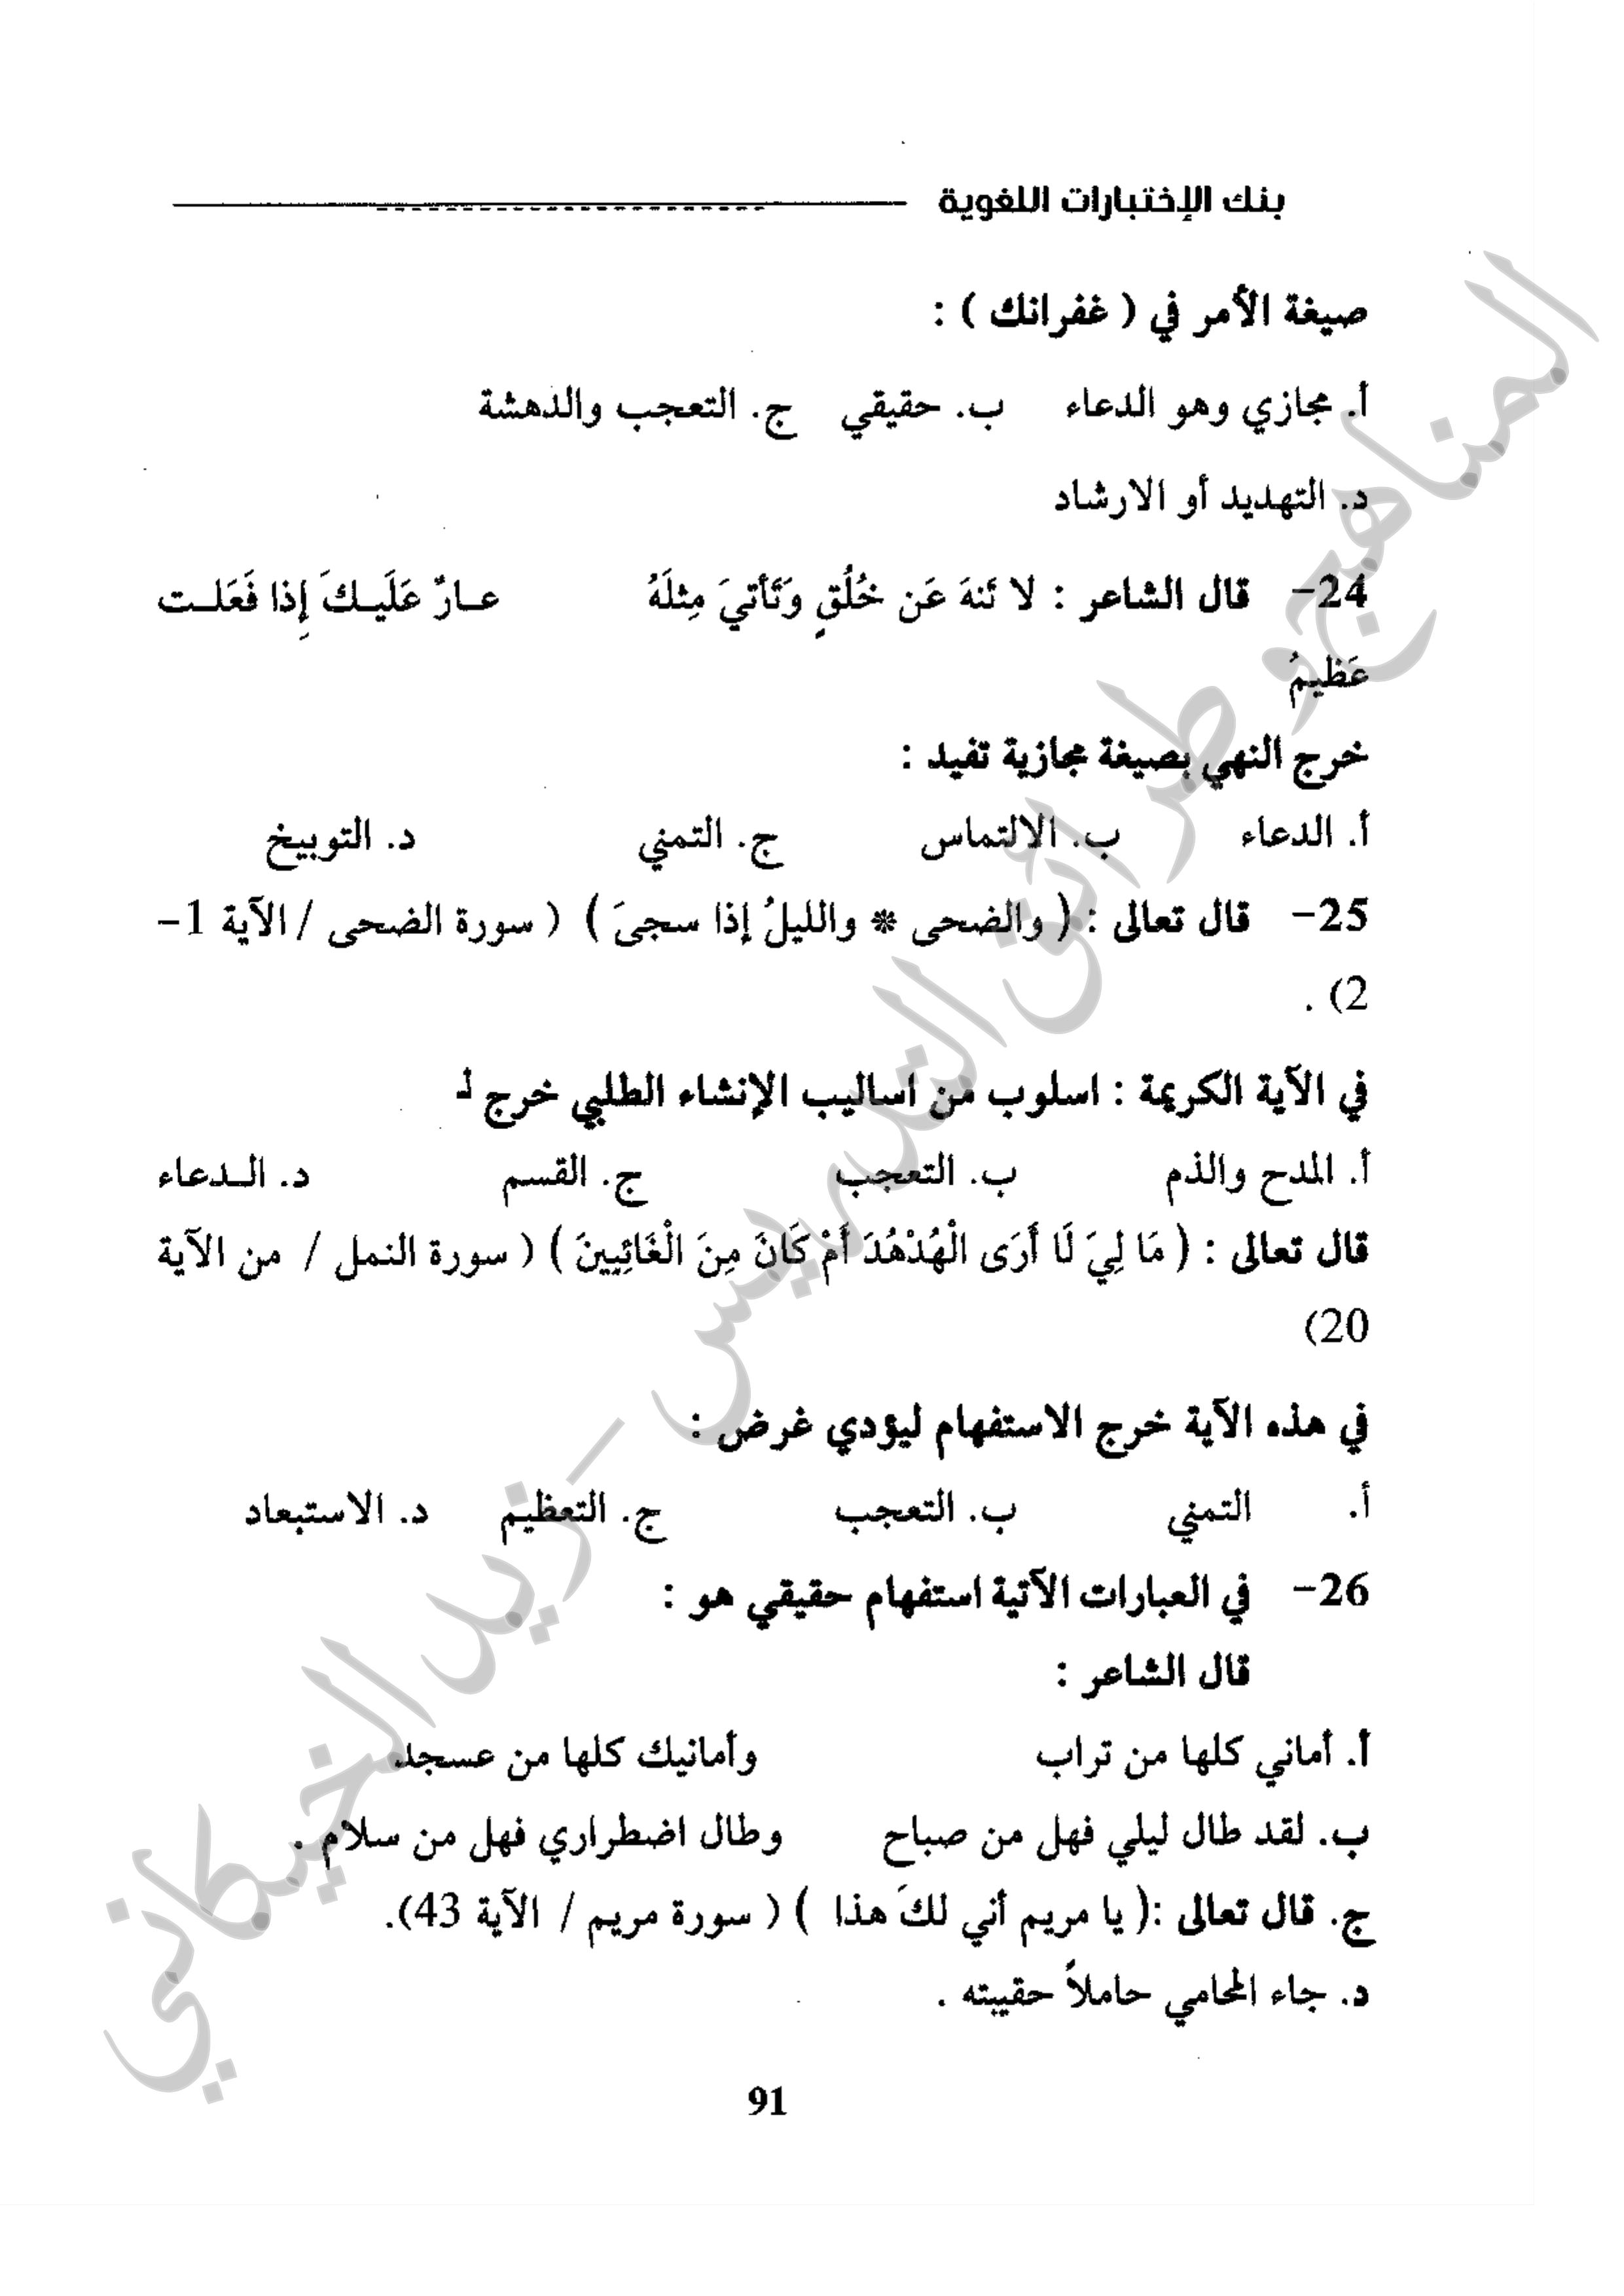 بنك الإختبارات اللغوية
صيغة الأمر في ( غفرانك ) :
أ. مجازي وهو الدعاء ب. حقيقي ج. التعجب والدهشة
د. التهديد أو الارشاد
24- قال الشاعر : لا تَنهَ عَن خُلُقٍ وَتَأتيَ مِثلَهُ عـارٌ عَلَيـكَ إِذا فَعَلـت
عَظيمُ
خرج النهي بصيغة مجازية تفيد :
أ. الدعاء ب. الالتماس ج. التمني د. التوبيخ
25- قال تعالى : ( والضحى * والليلُ إذا سجىَ ) ( سورة الضحى / الآية 1-
2) .
في الآية الكريمة : اسلوب من اساليب الإنشاء الطلبي خرج لـ
أ. المدح والذم ب. التعجب ج. القسم د. الـدعاء
قال تعالى : ( مَا لِيَ لَا أَرَى الْهُدْهُدَ أَمْ كَانَ مِنَ الْغَائِبِينَ ) ( سورة النمل / من الآية
20)
في هذه الآية خرج الاستفهام ليؤدي غرض :
أ. التمني ب. التعجب ج. التعظيم د. الاستبعاد
26- في العبارات الآتية استفهام حقيقي هو :
قال الشاعر :
أ. أماني كلها من تراب وأمانيك كلها من عسجد
ب. لقد طال ليلي فهل من صباح وطال اضطراري فهل من سلام .
ج. قال تعالى :( يا مريم أني لكَ هذا ) ( سورة مريم / الآية 43).
د. جاء المحامي حاملاً حقيبته .
91
المناهج وطرائق التدريس - زيد الخيكاني